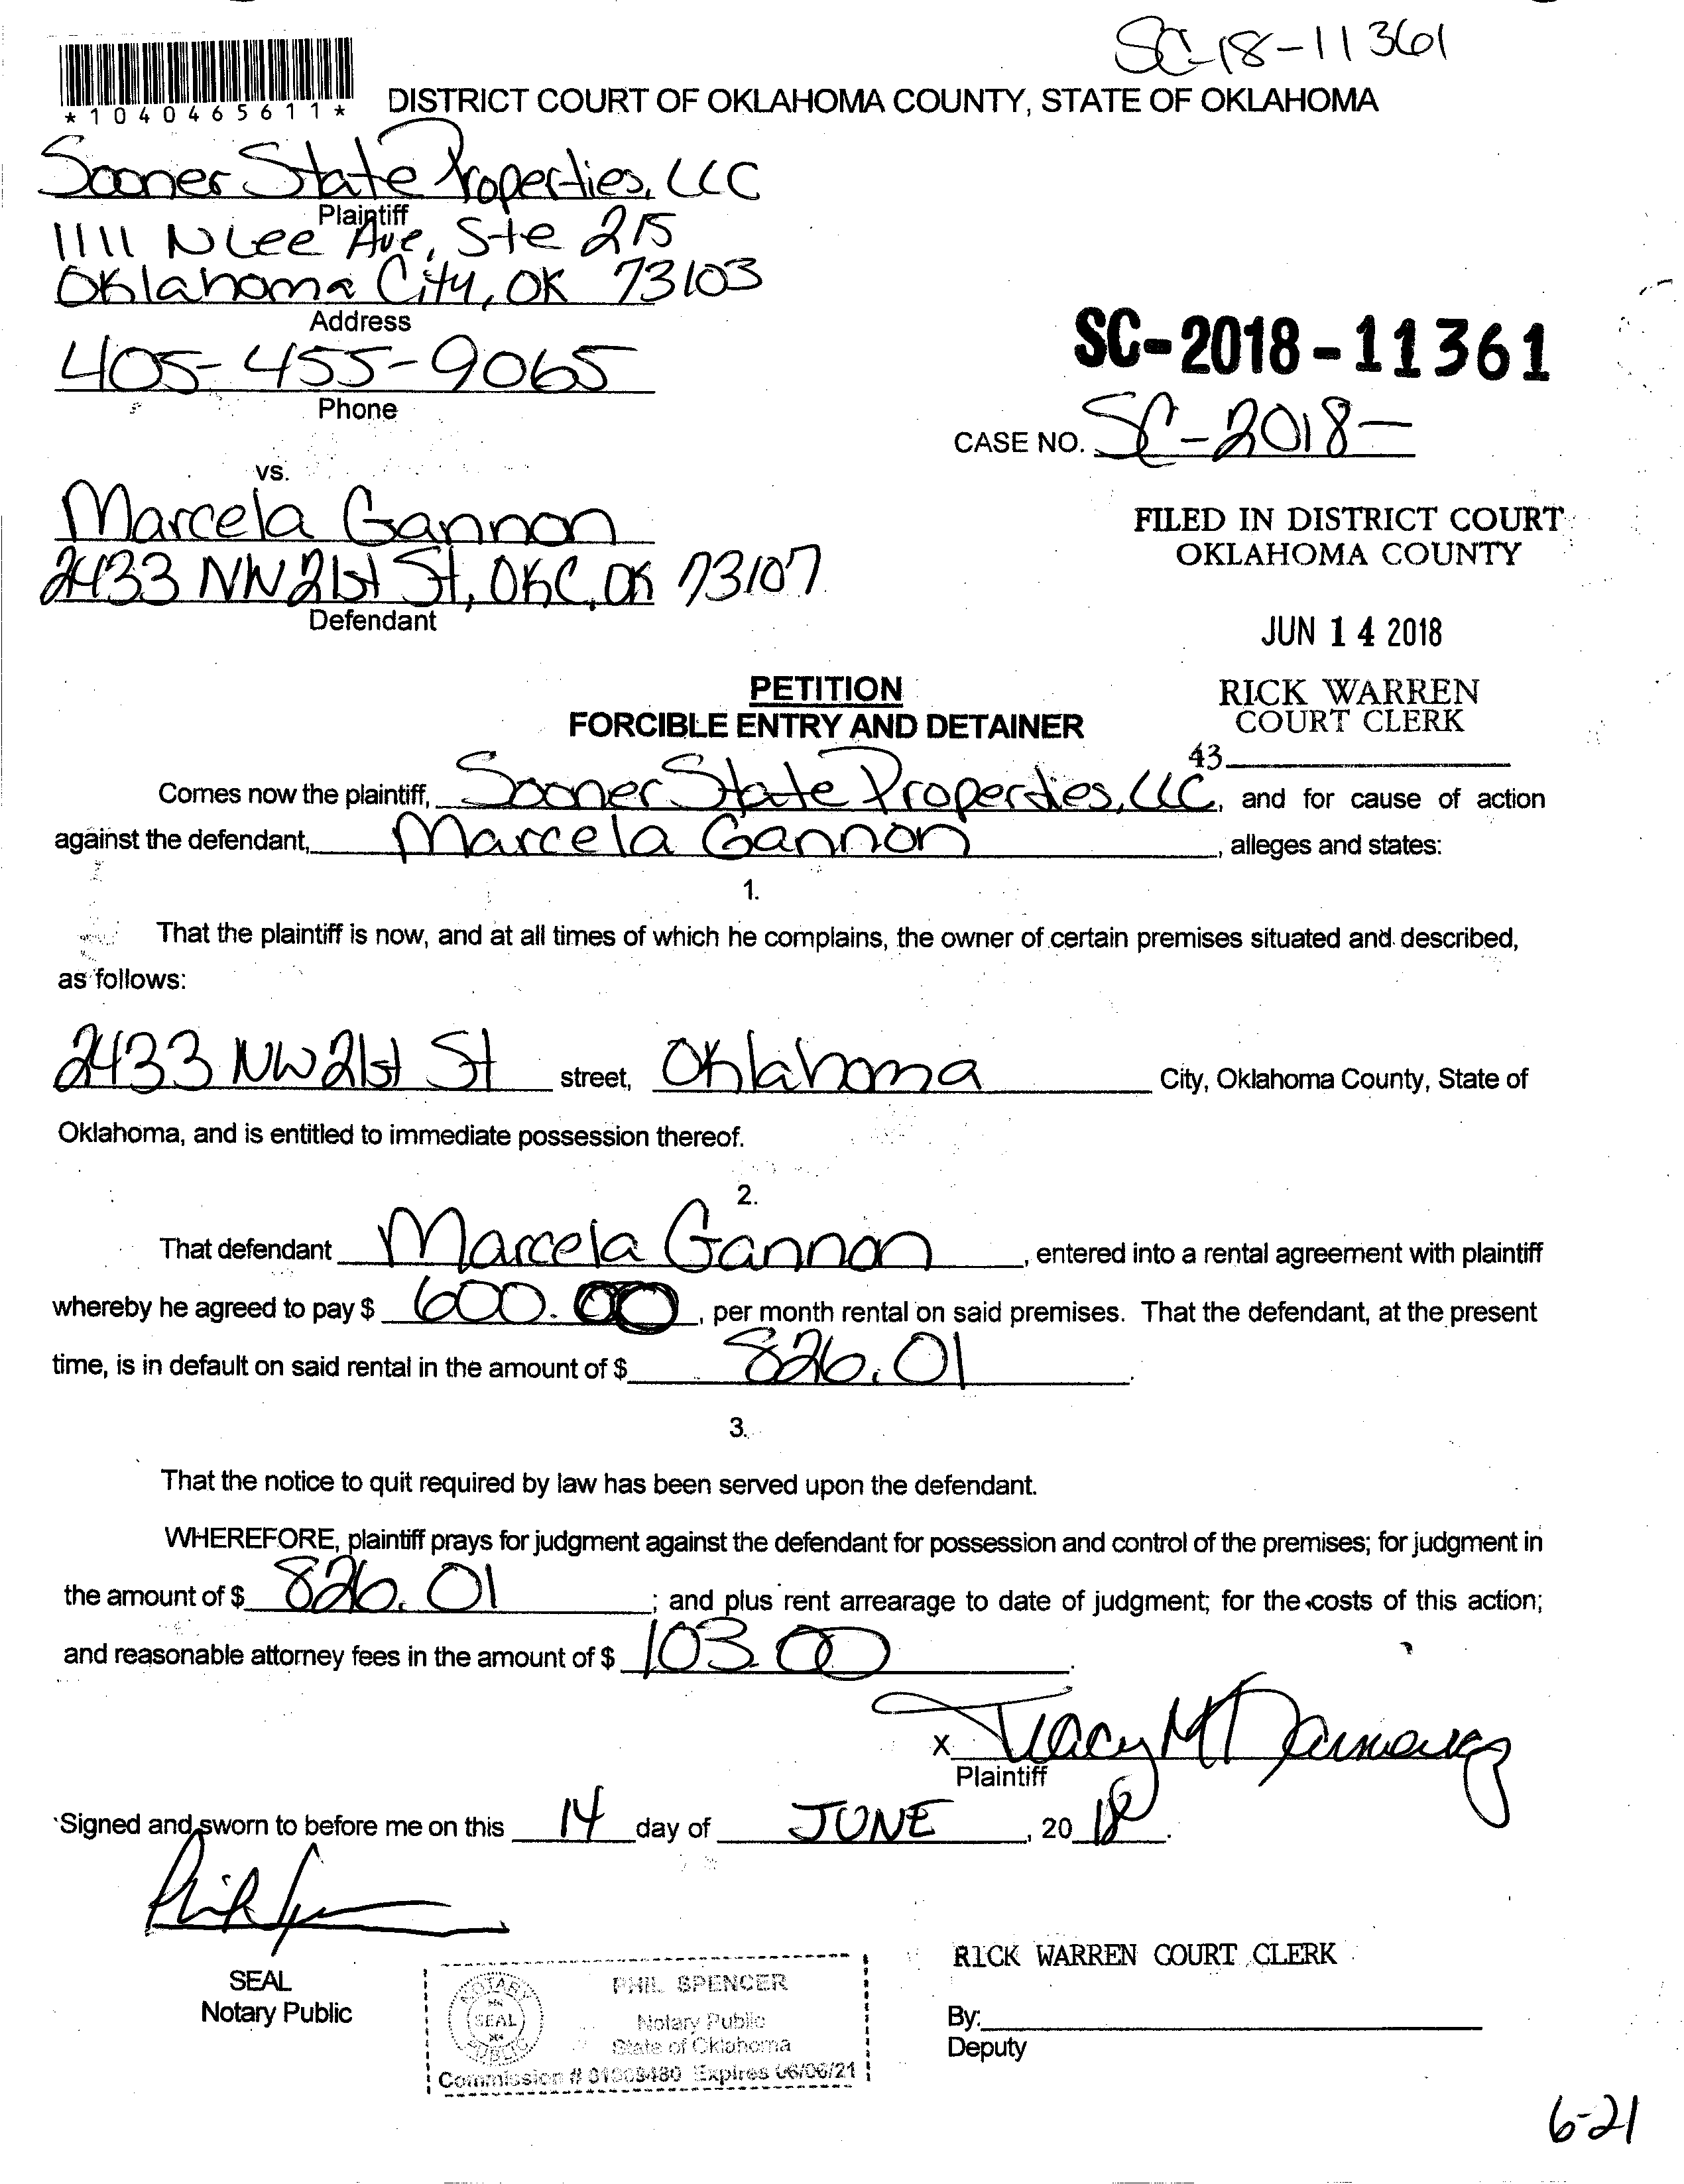 SC-18-11361
*1040465611*
DISTRICT COURT OF OKLAHOMA COUNTY, STATE OF OKLAHOMA
Sooner State Properties, LLC
Plaintiff
1111 N Lee Ave, Ste 215
Oklahoma City, OK 73103
Address
405-455-9065
Phone
SC-2018-11361
CASE NO. SC-2018-
vs.
Marcela Gannon
2433 NW 21st St, OKC, OK 73107
Defendant
FILED IN DISTRICT COURT
OKLAHOMA COUNTY
JUN 14 2018
RICK WARREN
COURT CLERK
43
PETITION
FORCIBLE ENTRY AND DETAINER
Comes now the plaintiff, Sooner State Properties, LLC, and for cause of action
against the defendant, Marcela Gannon, alleges and states:
1.
That the plaintiff is now, and at all times of which he complains, the owner of certain premises situated and described,
as follows:
2433 NW 21st St street, Oklahoma City, Oklahoma County, State of
Oklahoma, and is entitled to immediate possession thereof.
2.
That defendant Marcela Gannon, entered into a rental agreement with plaintiff
whereby he agreed to pay $ 600.00, per month rental on said premises. That the defendant, at the present
time, is in default on said rental in the amount of $ 826.01.
3.
That the notice to quit required by law has been served upon the defendant.
WHEREFORE, plaintiff prays for judgment against the defendant for possession and control of the premises; for judgment in
the amount of $ 826.01; and plus rent arrearage to date of judgment; for the costs of this action;
and reasonable attorney fees in the amount of $ 103.00.
x Tracy M
Plaintiff
Signed and sworn to before me on this 14 day of JUNE, 2018.
SEAL
Notary Public
NOTARY PUBLIC
SEAL
PHIL SPENCER
Notary Public
State of Oklahoma
Commission # Expires 06/06/21
RICK WARREN COURT CLERK
By:
Deputy
6-21